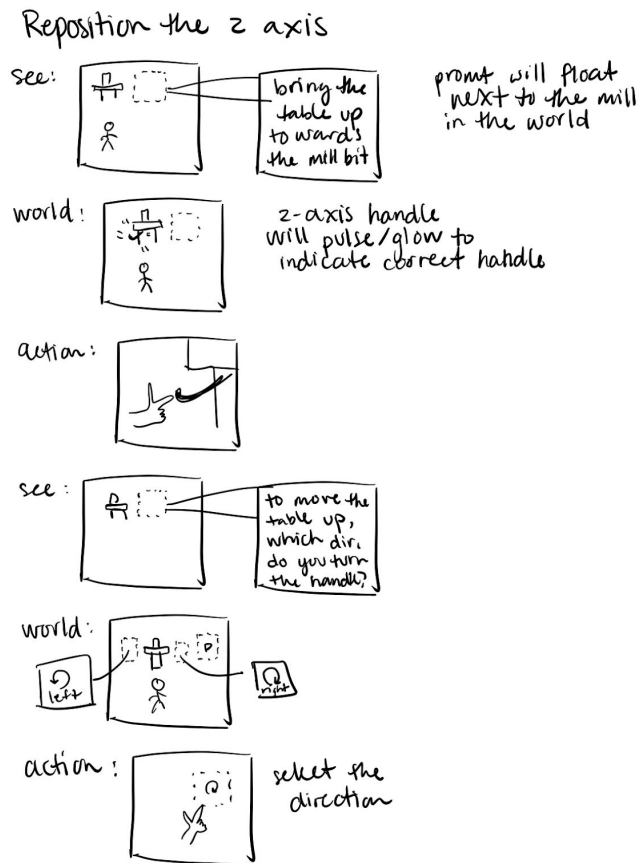 Reposition the z axis
see:
bring the
table up
towards
the mill bit
promt will float
next to the mill
in the world
world:
z-axis handle
will pulse/glow to
indicate correct handle
action:
see:
to move the
table up,
which dir.
do you turn
the handle?
world:
left
right
action:
select the
direction